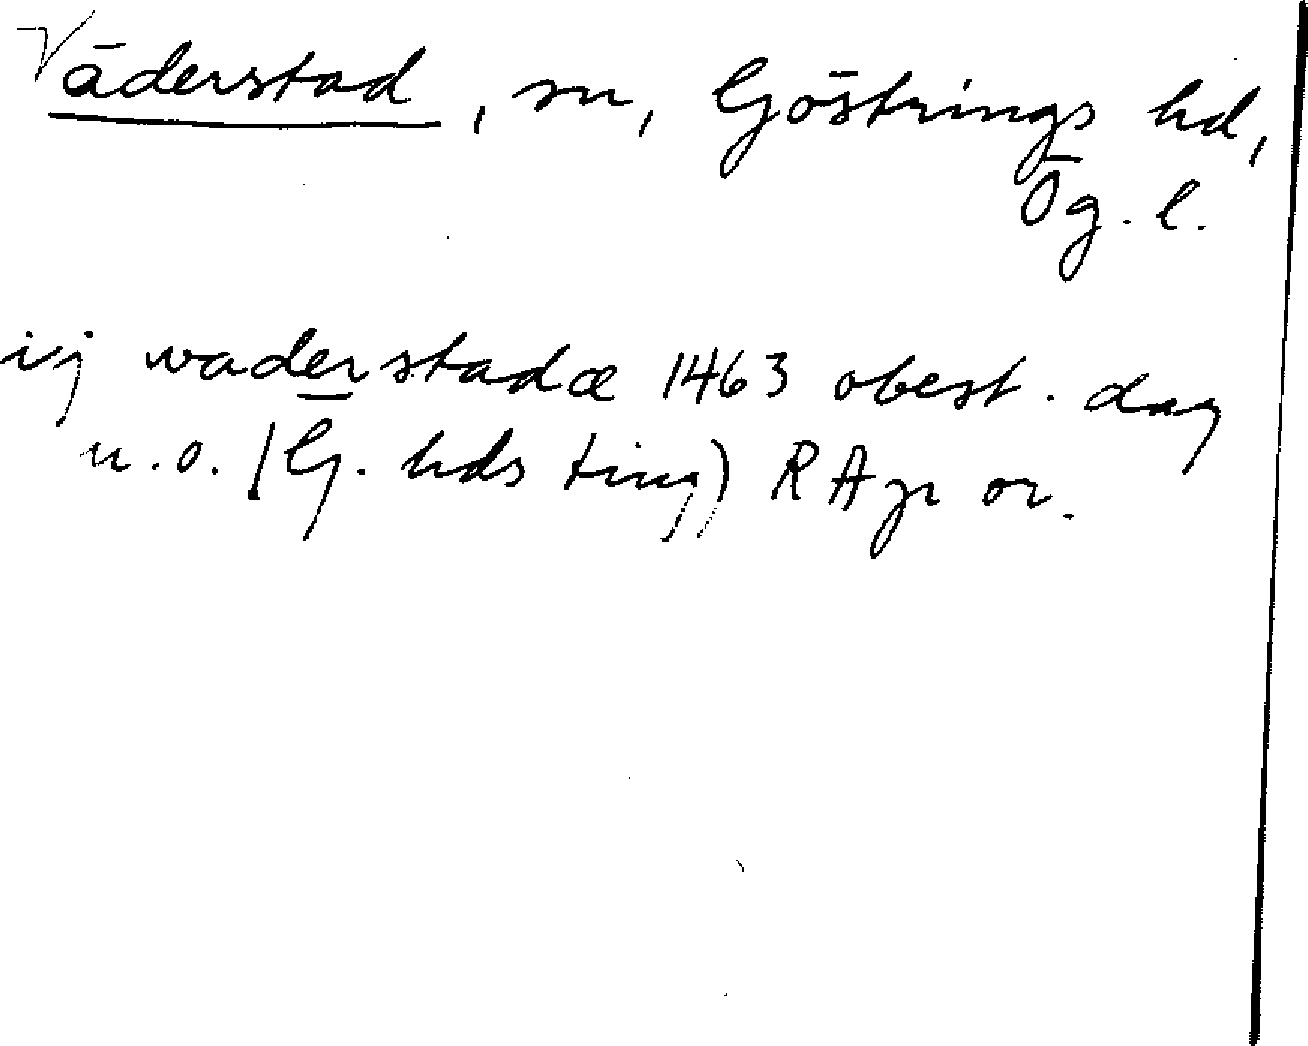 Väderstad, sn, Göstrings hd,
Ög. l.
ij waderstadæ 1463 obest. dag
u.o. (G. hds ting) RAp or.